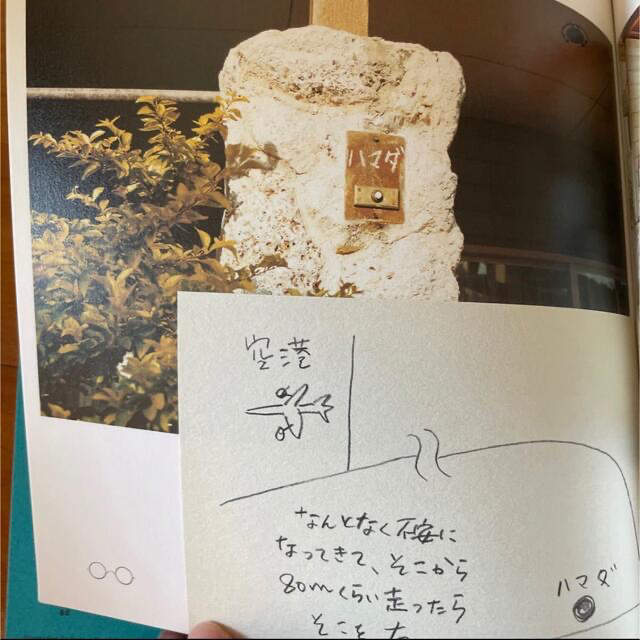 ハマダ
空港
なんとなく不安に
なってきて、そこから
80mくらい走ったら
そこを
ハマダ